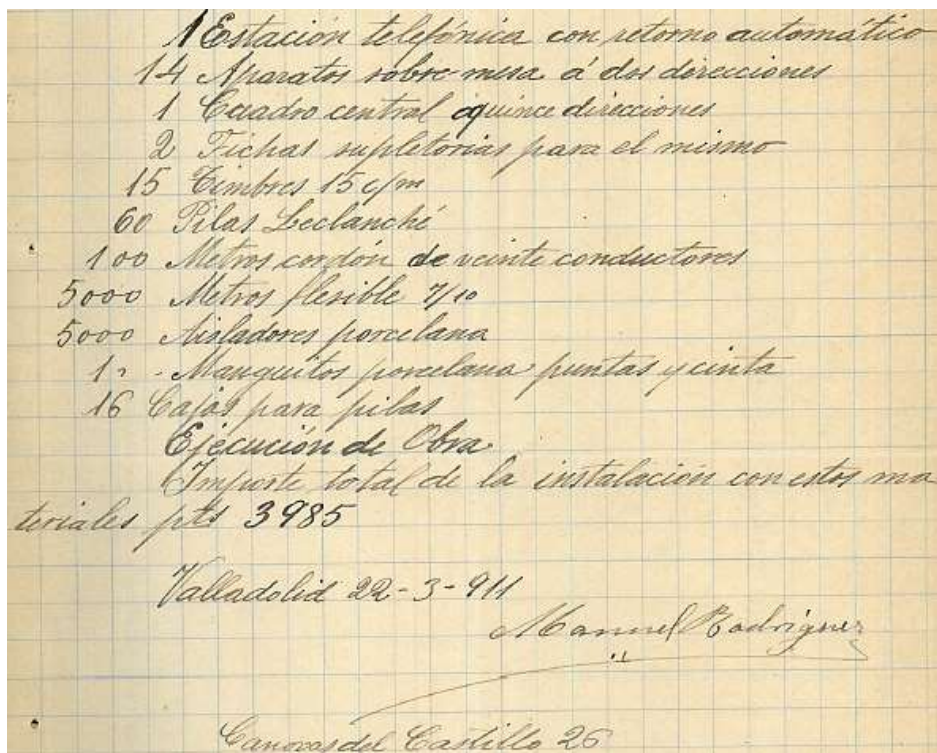 1 Estación telefónica con retorno automático
14 Aparatos sobre-mesa á dos direcciones
1 Cuadro central quince direcciones
2 Fichas supletorias para el mismo
15 Timbres 15 c/m
60 Pilas Leclanché
100 Metros cordón de veinte conductores
5000 Metros flexible 7/10
5000 Aisladores porcelana
- Manguitos porcelana puntas y cinta
16 Cajas para pilas
Ejecución de Obra
Importe total de la instalación con estos ma
teriales pts 3985
Valladolid 22-3-911
Manuel Rodriguez
Canovas del Castillo 26